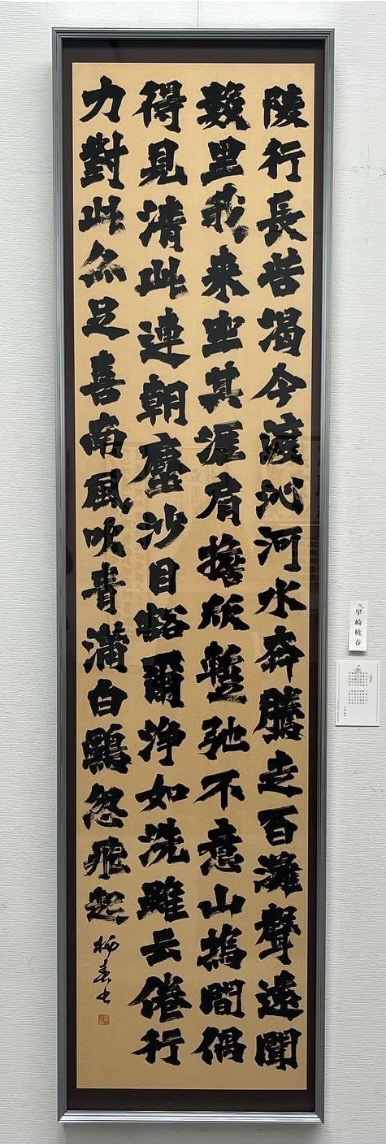 陸行長苦渇今渡沁河水奔騰走百灘聲遠聞
數里我来坐其涯肩擔欣蹔弛不意山間偶
得見清泚連朝塵沙目豁爾淨如洗雖云倦行
力對此亦足喜南風吹青白鷗忽飛起
早崎桃春